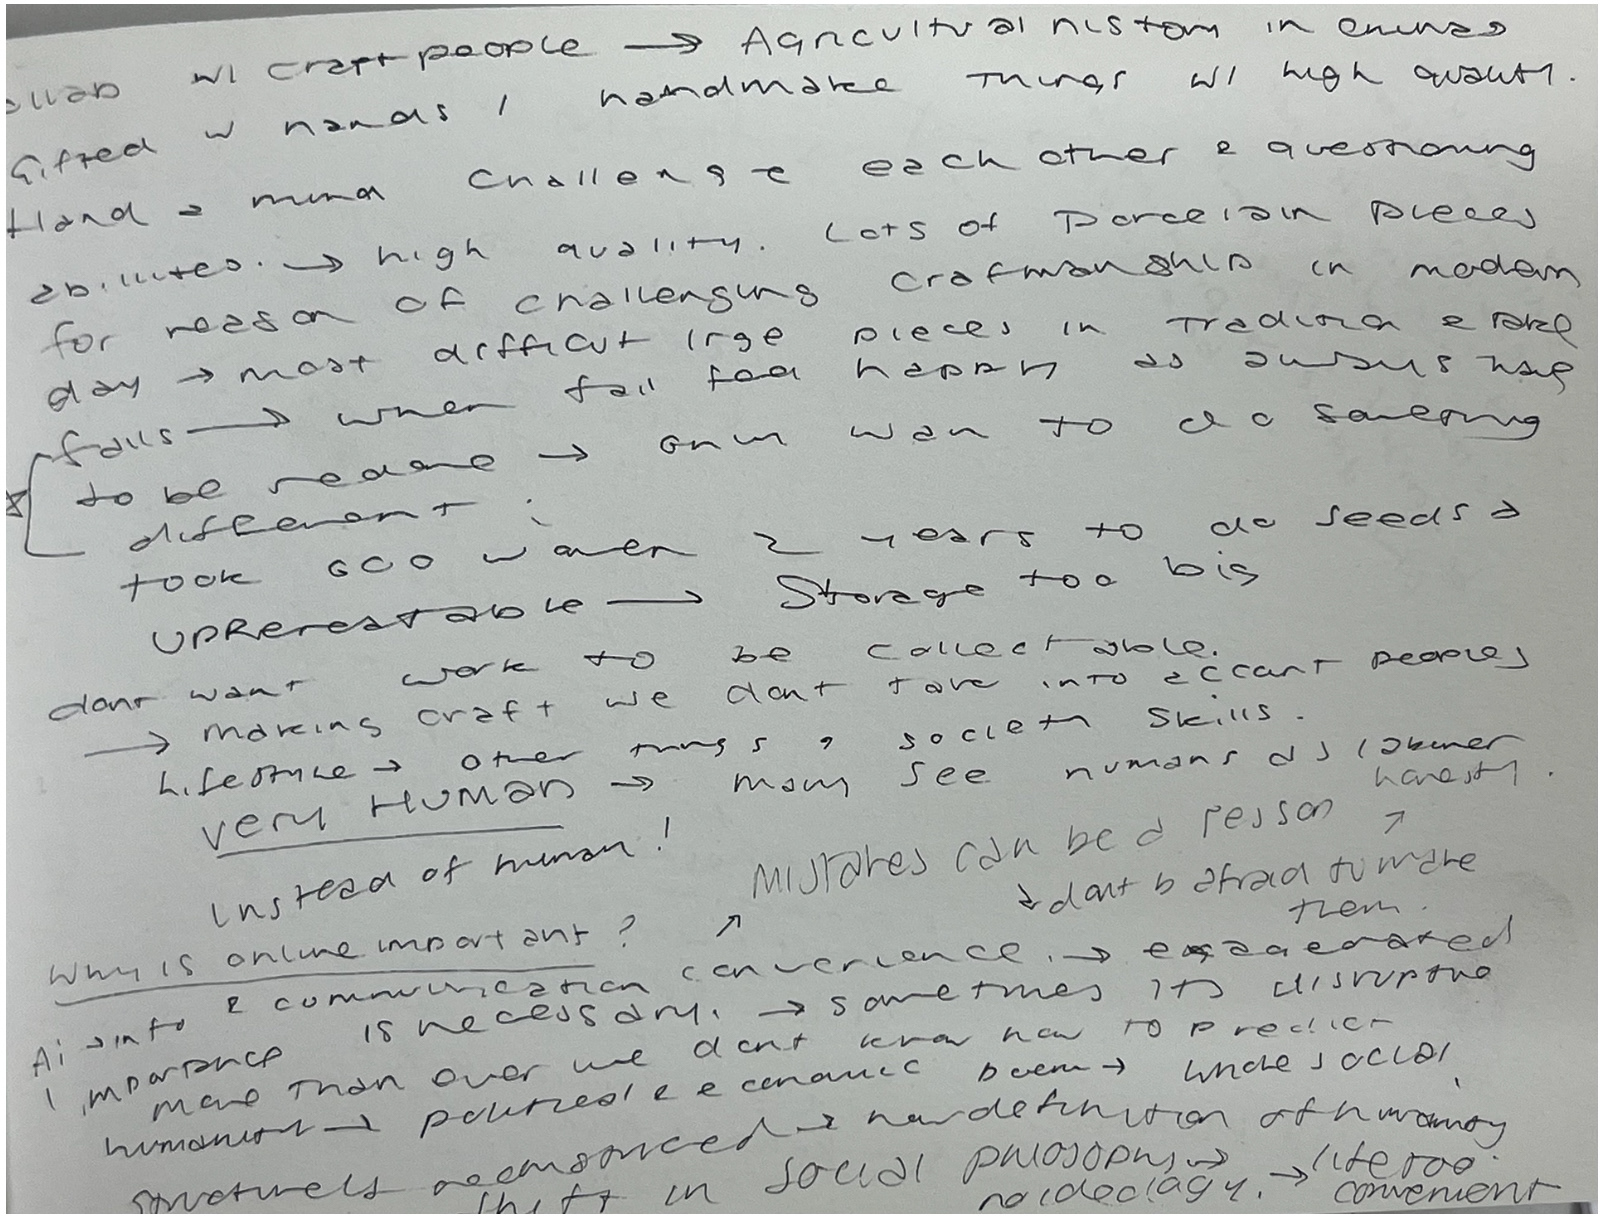 collab w/ craftpeople → Agricultural history in China →
Gifted w hands / handmake things w/ high quality.
Hand & mind challenge each other & questioning
abilites. → high quality. Lots of Porcelain pieces
for reason of challenging crafmanship in modern
day → most difficut lrge pieces in tradition &
fails → when fail feel happy as always have
to be redone → only wan to do
different.
took 600 women 2 years to do seeds →
→ Storage too big
dont want work to be collectable.
→ Making craft we dont take into accant peoples
Lifestyle → other things & society skills.
very HUMAN → many see humans as
instead of human!
honesty.
Mistakes can be a lesson ↗
↓ dont b afraid to make
them.
Why is online important? ↗
Ai → info & communication convenience. → exaggerated
importance is necessary. → sometimes its disruptive
more than ever we dont know how to predict
humanity → political & economic → whole social
structurely → new definition of humanity
shift in social philosophy → life too
no ideology. → convenient